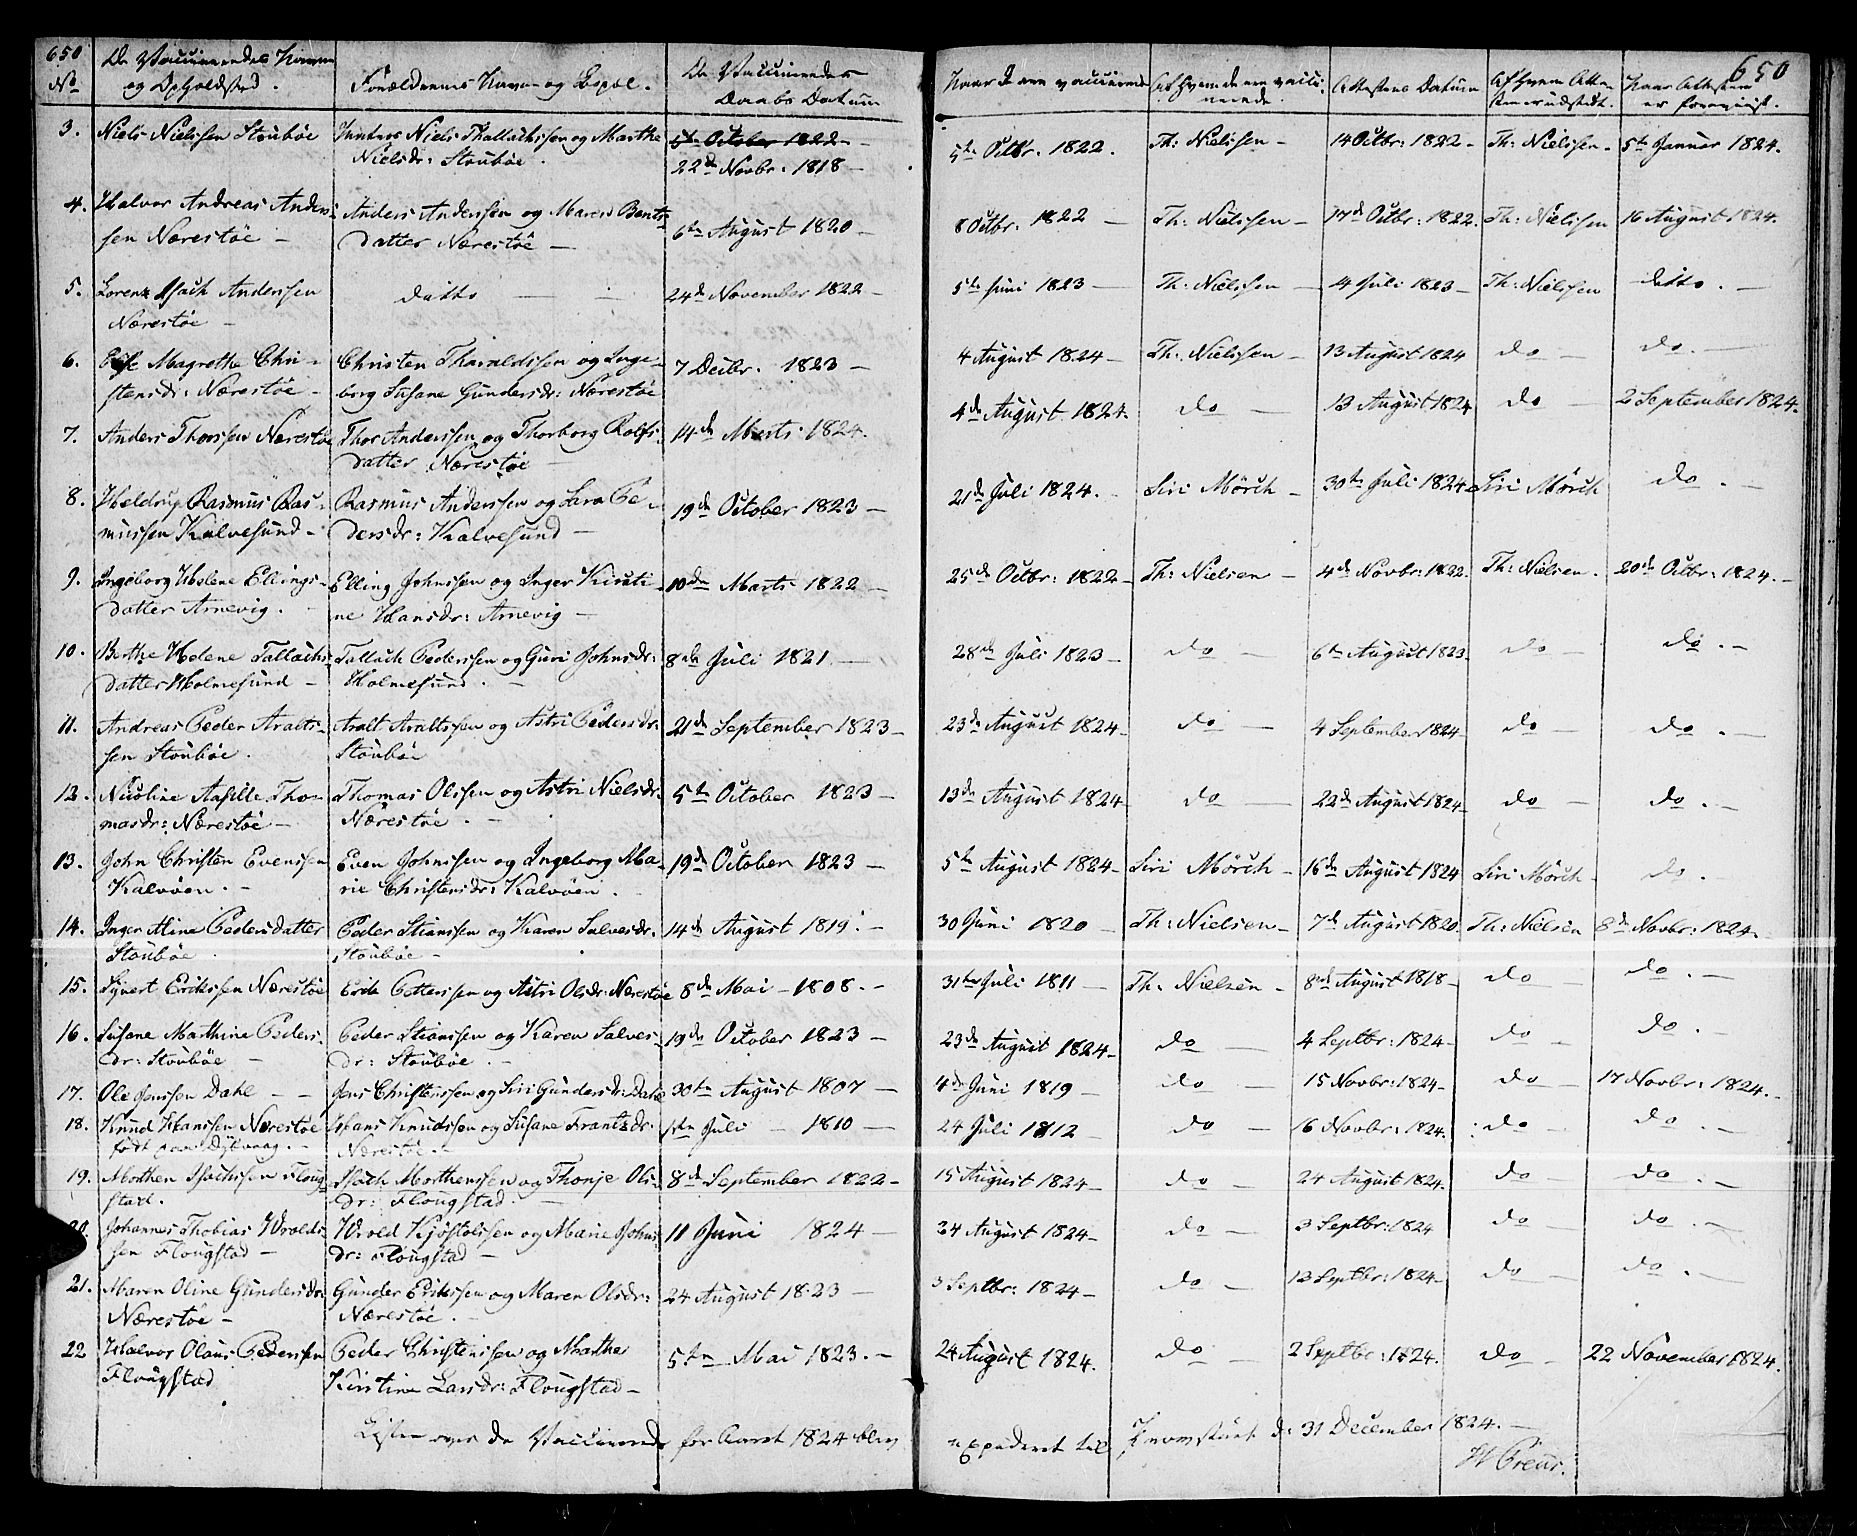 650
No
De Vaccineredes Navne
og Opholdsted.
Forældrenes Navne og Bopæl.
De Vaccineredes
Daabs Datum
Naar de ere vaccinerede
Af hvem de ere vacci-
nerede.
Attestens Datum
Af hvem Atte-
sten er udstedt.
Naar Attesten
er foreviist.
650
3. Niels Nielssen Stoubøe
Junkers Niels Thallachssen og Marthe
Nielsdr: Stoubøe.
5te October 1822 -
22de Novbr: 1818 -
5te Octbr. 1822. Th: Nielssen - 14 Octbr: 1822 - Th: Nielssen - 5te Januar 1824.
4. Halvor Andreas Anders-
sen Nærestøe -
Anders Anderssen og Maren Bents-
datter Nærestøe -
6te August 1820 -
8 Octbr. 1822 - Th: Nielssen - 17de Octbr: 1822. Th: Nielssen 16 August 1824.
5. Lorenz Isach Anderssen
Nærestøe -
ditto - -
24de November 1822 -
5te Juni 1823 - Th: Nielssen - 14 Juli 1823 - Th: Nielssen ditto. -
6. Else Magrethe Chri-
stensdr: Nærestøe -
Christen Tharaldssen og Inge-
borg Susane Gundersdr: Nærestøe
7 Decbr. 1823 -
4 August 1824 - Th: Nielssen - 13 August 1824 do - do. -
7. Anders Thorssen Nærestøe
Thor Anderssen og Thorborg Rolfs-
datter Nærestøe -
14de Marts 1824.
4de August 1824. do - 13 August 1824 do - 2 September 1824.
8. Heldrup Rasmus Ras-
mussen Kalvesund -
Rasmus Anderssen og Sara Pe-
dersdr: Kalvesund -
19de October 1823 -
21de Juli 1824. - Siri Mörch - 30te Juli 1824 Siri Mörch do. -
9. Ingeborg Helene Ellings-
datter Arnevig. -
Elling Johnssen og Inger Kirsti-
ne Hansdr: Arnevig -
10de Marts 1822 -
25de Octbr: 1822 - Th: Nielsen - 4de Novbr: 1822. Th: Nielsen. 20de Octbr: 1824. -
10. Berthe Helene Tallachs-
datter Holmesund -
Tallach Pederssen og Guri Johnsdr:
Holmesund. -
8de Juli 1821. -
28de Juli 1823 - do - 6te August 1823 - do - do. -
11. Andreas Peder Aralts-
sen Stoubøe.
Aralt Araltssen og Astri Pedersdr:
Stoubøe
21de September 1823 -
23de August 1824 - do - 4 September 1824 - do - do. -
12. Nicoline Aasille Tho-
masdr: Nærestøe -
Thomas Olssen og Astri Nielsdr:
Nærestøe. -
5te October 1823 -
13de August 1824 - do - 22de August 1824 - do - do. -
13. John Christen Evenssen
Kalvöen. -
Even Johnssen og Ingeborg Ma-
rie Christensdr: Kalvöen.
19de October 1823 -
5te August 1824 - Siri Mörch - 16de August 1824 Siri Mörch - do.
14. Inger Mine Pedersdatter
Stoubøe.
Peder Stianssen og Karen Salvesdr.
Stoubøe -
14de August 1819. -
30 Juni 1820 - Th: Nielsen - 7de August 1820. Th: Nielsen 8de Novbr: 1824. -
15. Syvert Erikssen Nærestøe
Erik Petterssen og Astri Olsdr: Nærestøe
8de Mai - 1808. -
31te Juli 1811 - Th: Nielsen - 8de August 1818 - do - do. -
16. Susane Mathine Peders-
dr: Stoubøe -
Peder Stianssen og Karen Salves-
dr: Stoubøe. -
19de October 1823 -
23de August 1824 - do - 4 Septbr: 1824 - do - do. -
17. Ole Jenssen Dahl - -
Jens Christenssen og Siri Gundersdr: Dahl
30te August 1807 -
4de Juni 1819 - do - 15 Novbr: 1824 - do - 17 Novbr: 1824. -
18. Knud Hanssen Nærestøe
født paa Dybvaag.
Hans Knudssen og Susane Frantzdr:
Nærestøe. -
1te Juli - 1810 -
24 Juli 1812 - do - 16 Novbr: 1824. do - do. -
19. Morthen Isachssen Floug-
stad.
Isach Morthenssen og Thonje Ols-
dr: Flougstad. -
8de September 1822 -
15 August 1824 - do - 24 August 1824. do - do. -
20. Johannes Thobias Wrolds-
sen Flougstad -
Wrold Kjøstolssen og Marie Johns-
dr: Flougstad -
11 Juni 1824 -
24 August 1824 - do - 3 Septbr: 1824 do - do. -
21. Maren Oline Gundersdr:
Nærestøe -
Gunder Erikssen og Maren Olsdr:
Nærestøe. -
24 August 1823 -
3 Septbr: 1824 - do - 13 Septbr: 1824 - do - do. -
22 Halvor Olaus Pederssen
Flougstad
Peder Christenssen og Marthe
Kirstine Larsdr: Flougstad -
5te Mai 1823. -
24 August 1824. do - 2 Septbr: 1824. do - 22 November 1824.
Listen over de Vaccinerede for Aaret 1824 blev
expederet til Provstiet d: 31 December 1824. -